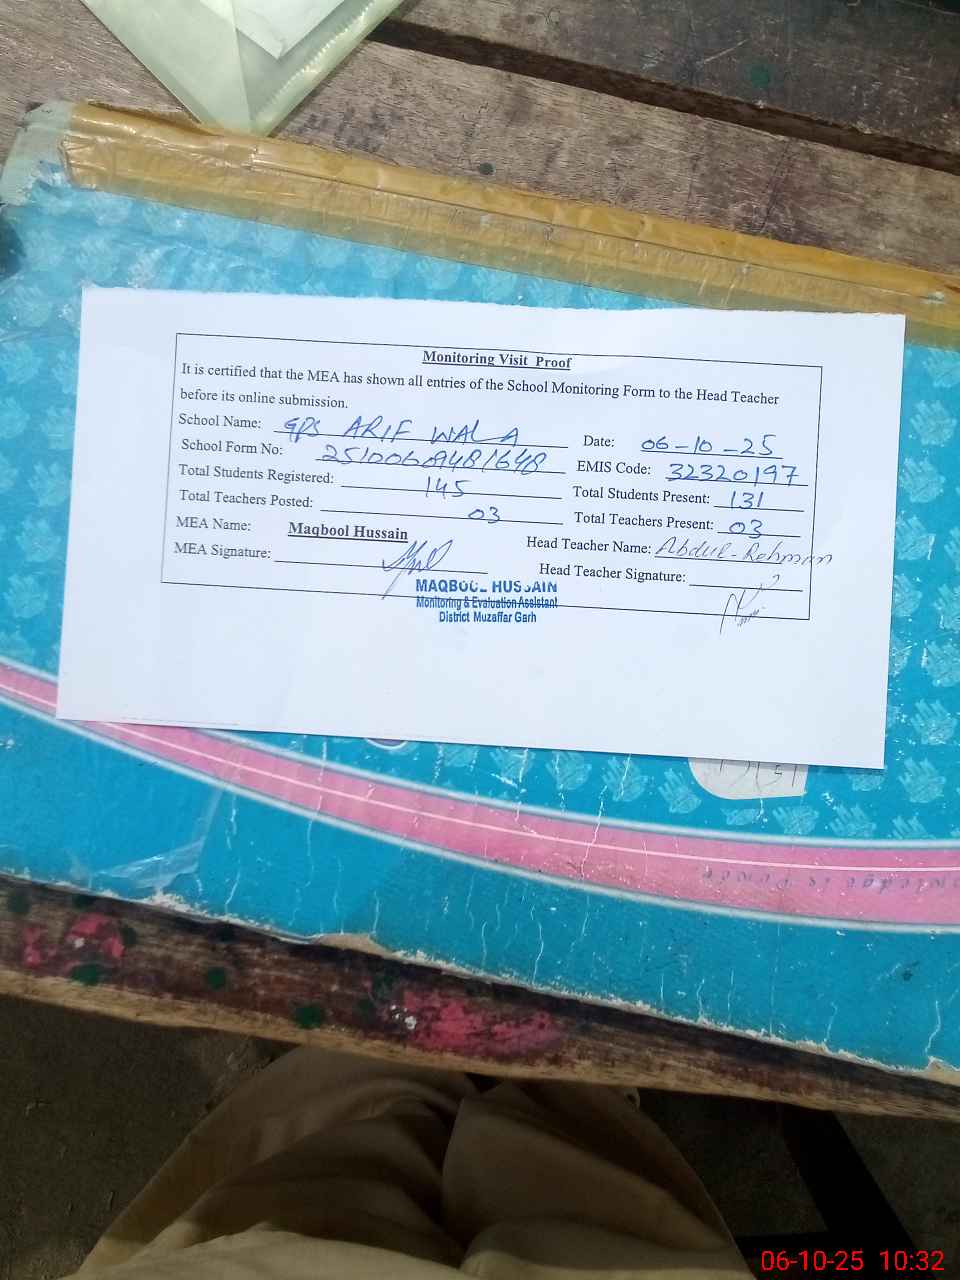 Monitoring Visit Proof
It is certified that the MEA has shown all entries of the School Monitoring Form to the Head Teacher
before its online submission.
School Name: GPS ARIF WALA Date: 06-10-25
School Form No: EMIS Code: 32320197
Total Students Registered: 145 Total Students Present: 131
Total Teachers Posted: 03 Total Teachers Present: 03
MEA Name: Maqbool Hussain Head Teacher Name: Abdul-Rehman
MEA Signature: Head Teacher Signature:
MAQBOOL HUSSAIN
Monitoring & Evaluation Assistant
District Muzaffar Garh
06-10-25 10:32